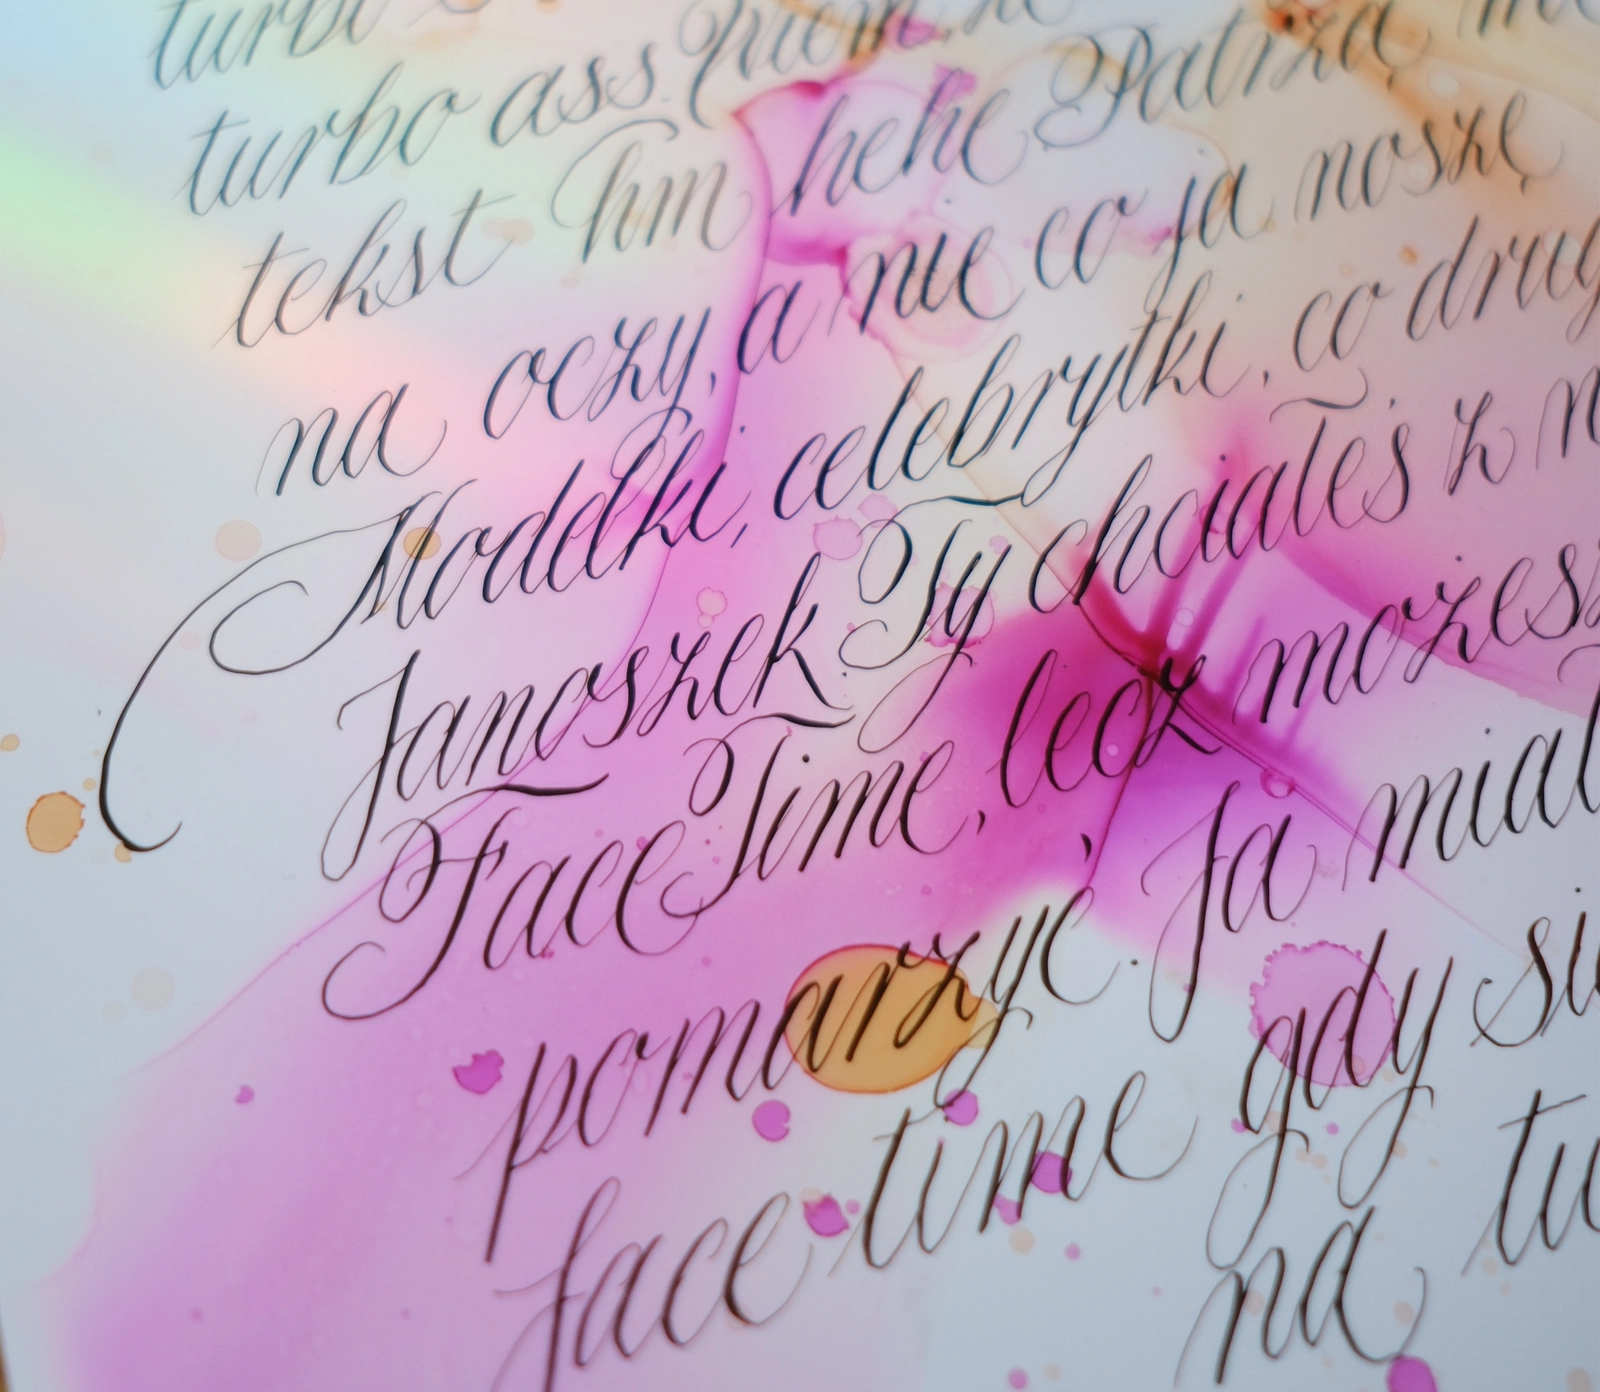 turbo
turbo ass Wiem, że
tekst hm hehe Patrzą mi
na oczy, a nie co ja noszę
Modelki, celebrytki, co drug
Janoszek Ty chciałeś z n
Face Time, lecz możesz
pomarzyć. Ja miał
face time gdy sie
na tw